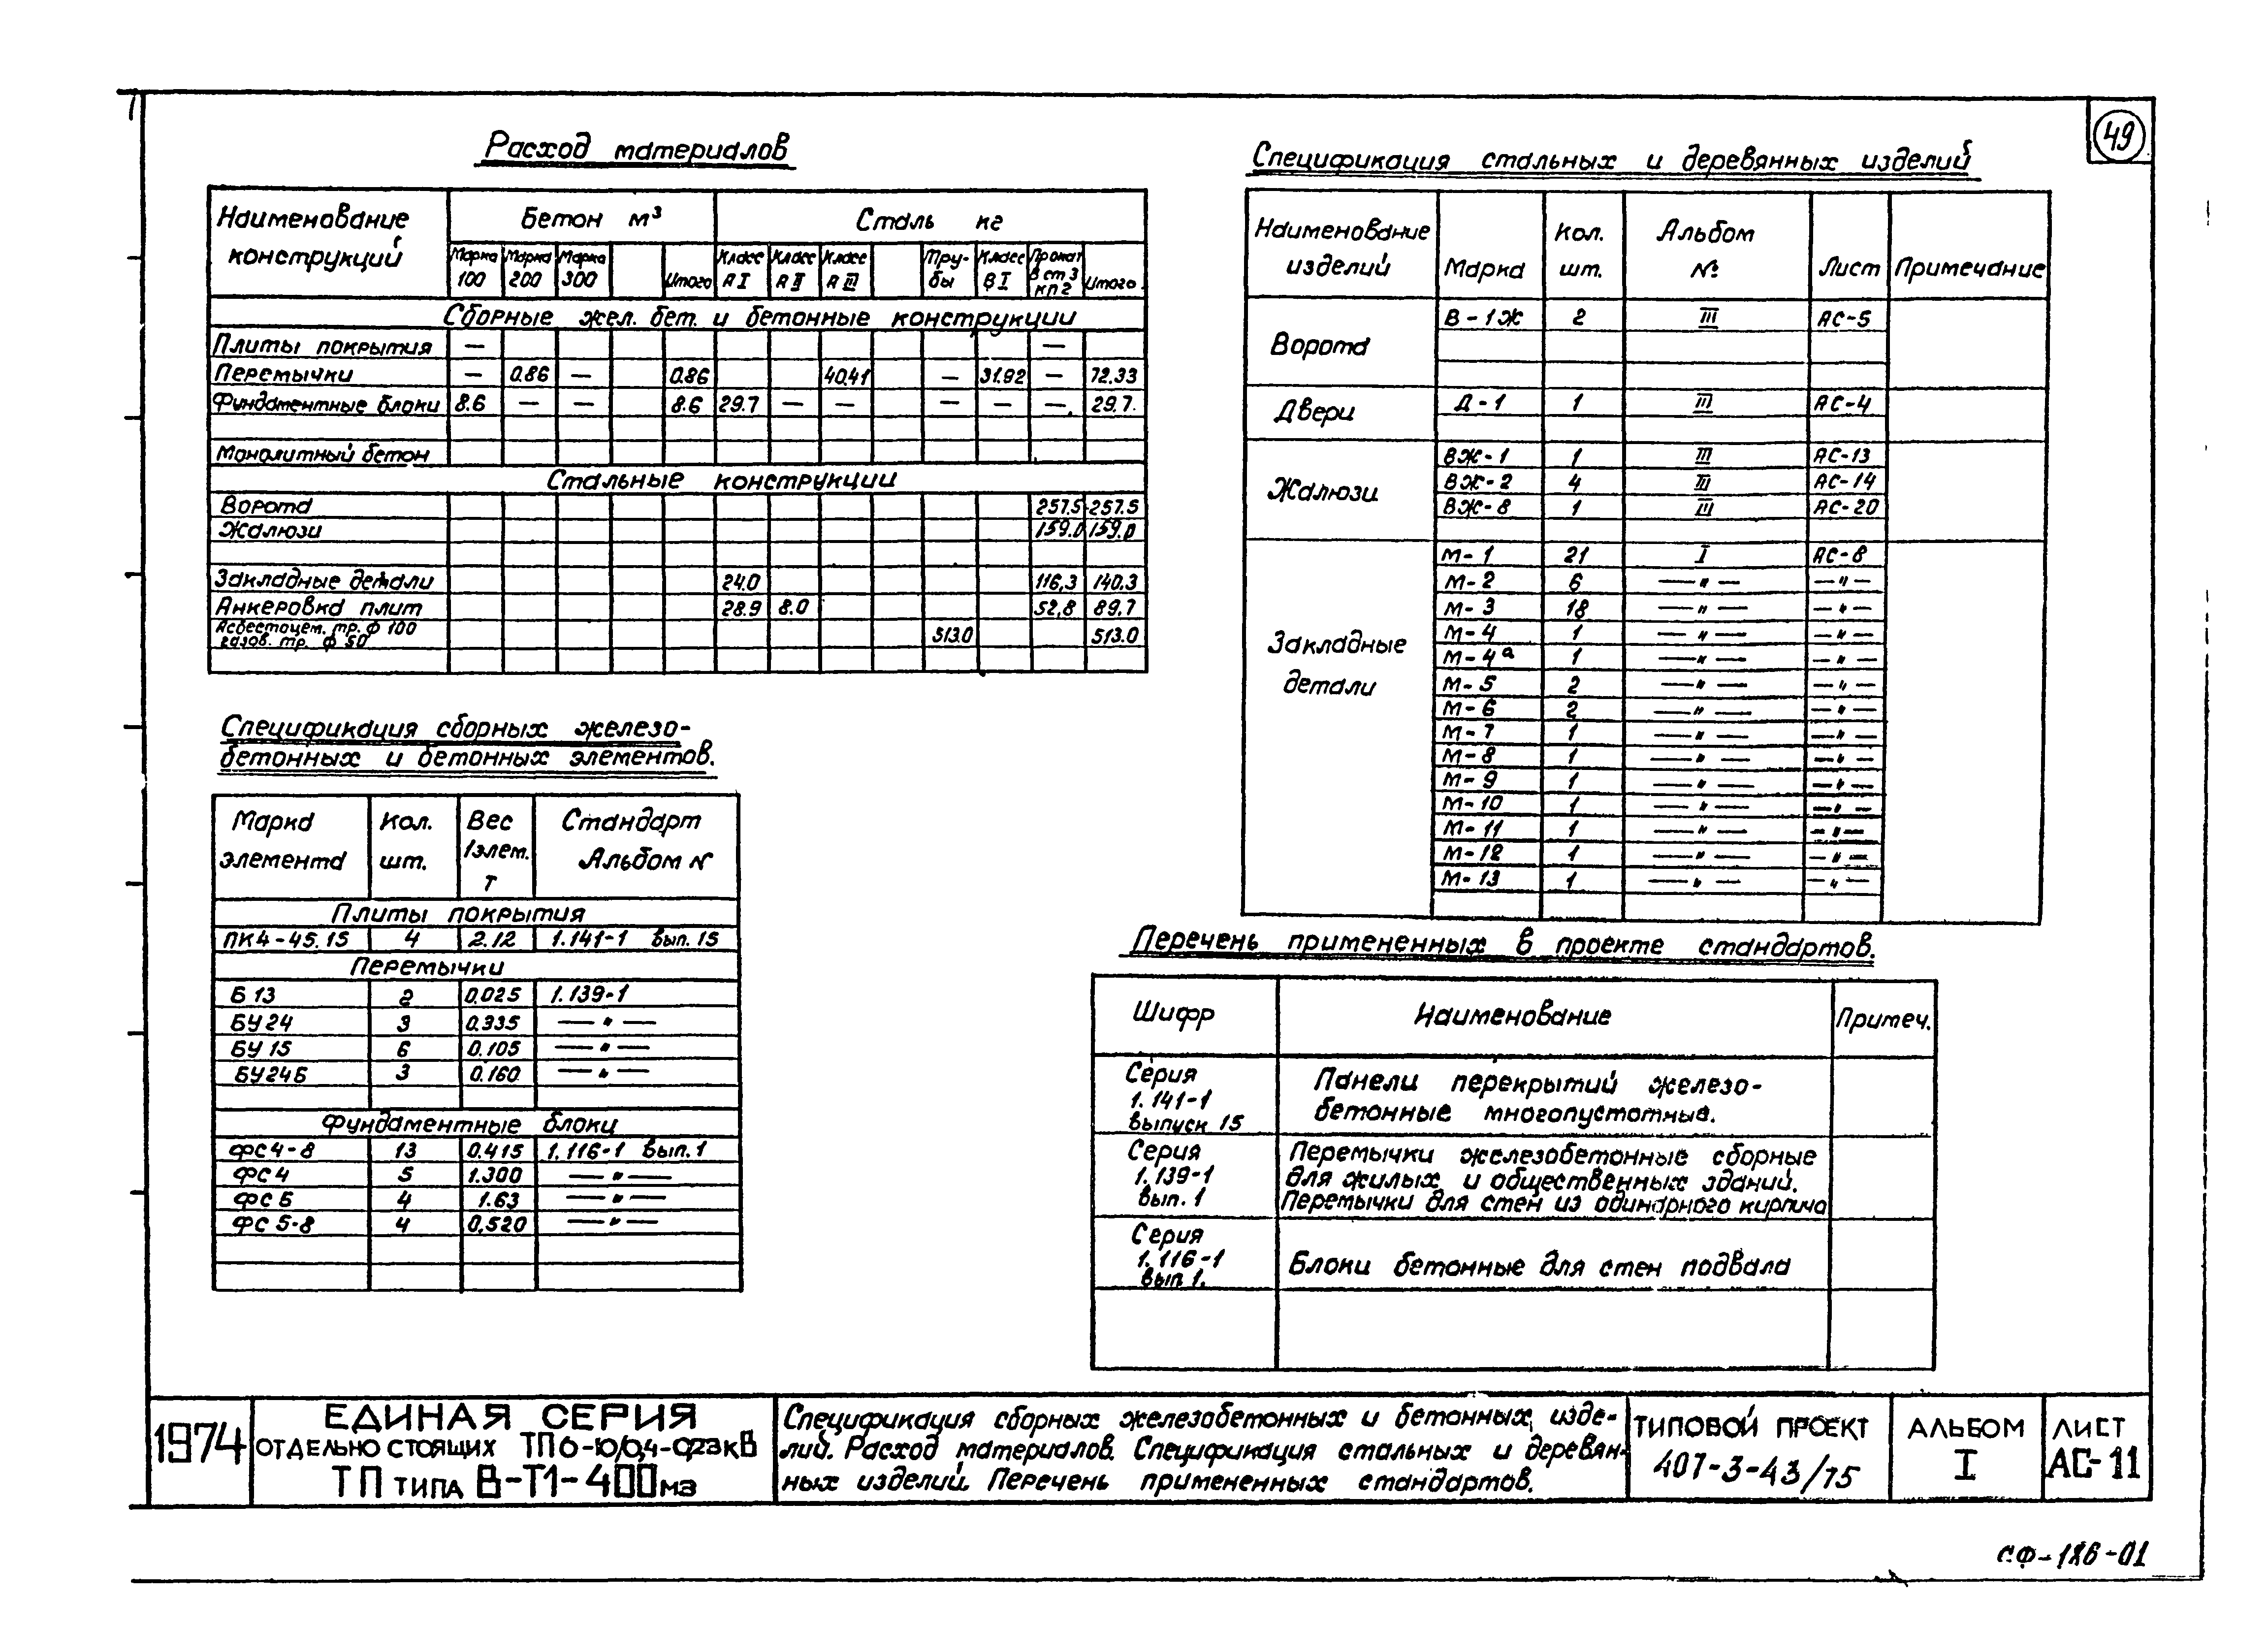 49
Расход материалов
Наименование конструкций | Бетон м³ | Сталь кг
Марка 100 | Марка 200 | Марка 300 | | Итого | Класс А I | Класс А II | Класс А III | | Трубы | Класс В I | Прокат В ст 3 кп 2 | Итого
Сборные жел. бет. и бетонные конструкции
Плиты покрытия — —
Перемычки — 0.86 — 0.86 40.41 — 31.92 — 72.33
Фундаментные блоки 8.6 — — 8.6 29.7 — — — — — 29.7.
Монолитный бетон
Стальные конструкции
Ворота 257.5 257.5
Жалюзи 159.0 159.0
Закладные детали 24.0 116,3 140.3
Анкеровка плит 28.9 8.0 52,8 89.7
Асбестоцем. тр. ф 100
газов. тр. ф 50 513.0 513.0
Спецификация сборных железо-
бетонных и бетонных элементов.
Марка элемента | Кол. шт. | Вес 1элем. т | Стандарт Альбом N
Плиты покрытия
ПК4-45.15 4 2.12 1.141-1 вып. 15
Перемычки
Б 13 2 0.025 1.139-1
БУ24 3 0.335 — " —
БУ 15 6 0.105 — " —
БУ24Б 3 0.160 — " —
Фундаментные блоки
ФС4-8 13 0.415 1.116-1 вып. 1
ФС 4 5 1.300 — " —
ФС 5 4 1.63 — " —
ФС 5-8 4 0,520 — " —
Спецификация стальных и деревянных изделий
Наименование изделий | Марка | Кол. шт. | Альбом № | Лист | Примечание
Ворота В-1Ж 2 III АС-5
Двери Д-1 1 III АС-4
Жалюзи
ВЖ-1 1 III АС-13
ВЖ-2 4 III АС-14
ВЖ-8 1 III АС-20
Закладные детали
М-1 21 I АС-8
М-2 6 — " — — " —
М-3 18 — " — — " —
М-4 1 — " — — " —
М-4а 1 — " — — " —
М-5 2 — " — — " —
М-6 2 — " — — " —
М-7 1 — " — — " —
М-8 1 — " — — " —
М-9 1 — " — — " —
М-10 1 — " — — " —
М-11 1 — " — — " —
М-12 1 — " — — " —
М-13 1 — " — — " —
Перечень примененных в проекте стандартов.
Шифр | Наименование | Примеч.
Серия
1.141-1
выпуск 15
Панели перекрытий железо-
бетонные многопустотные.
Серия
1.139-1
вып. 1
Перемычки железобетонные сборные
для жилых и общественных зданий.
Перемычки для стен из одинарного кирпича
Серия
1.116-1
вып 1.
Блоки бетонные для стен подвала
1974
ЕДИНАЯ СЕРИЯ
ОТДЕЛЬНО СТОЯЩИХ ТП 6-10/0,4-0,23кВ
ТП ТИПА В-Т1-400м3
Спецификация сборных железобетонных и бетонных изде-
лий. Расход материалов. Спецификация стальных и деревян-
ных изделий. Перечень примененных стандартов.
ТИПОВОЙ ПРОЕКТ
407-3-43/75
АЛЬБОМ
I
ЛИСТ
АС-11
СФ-186-01